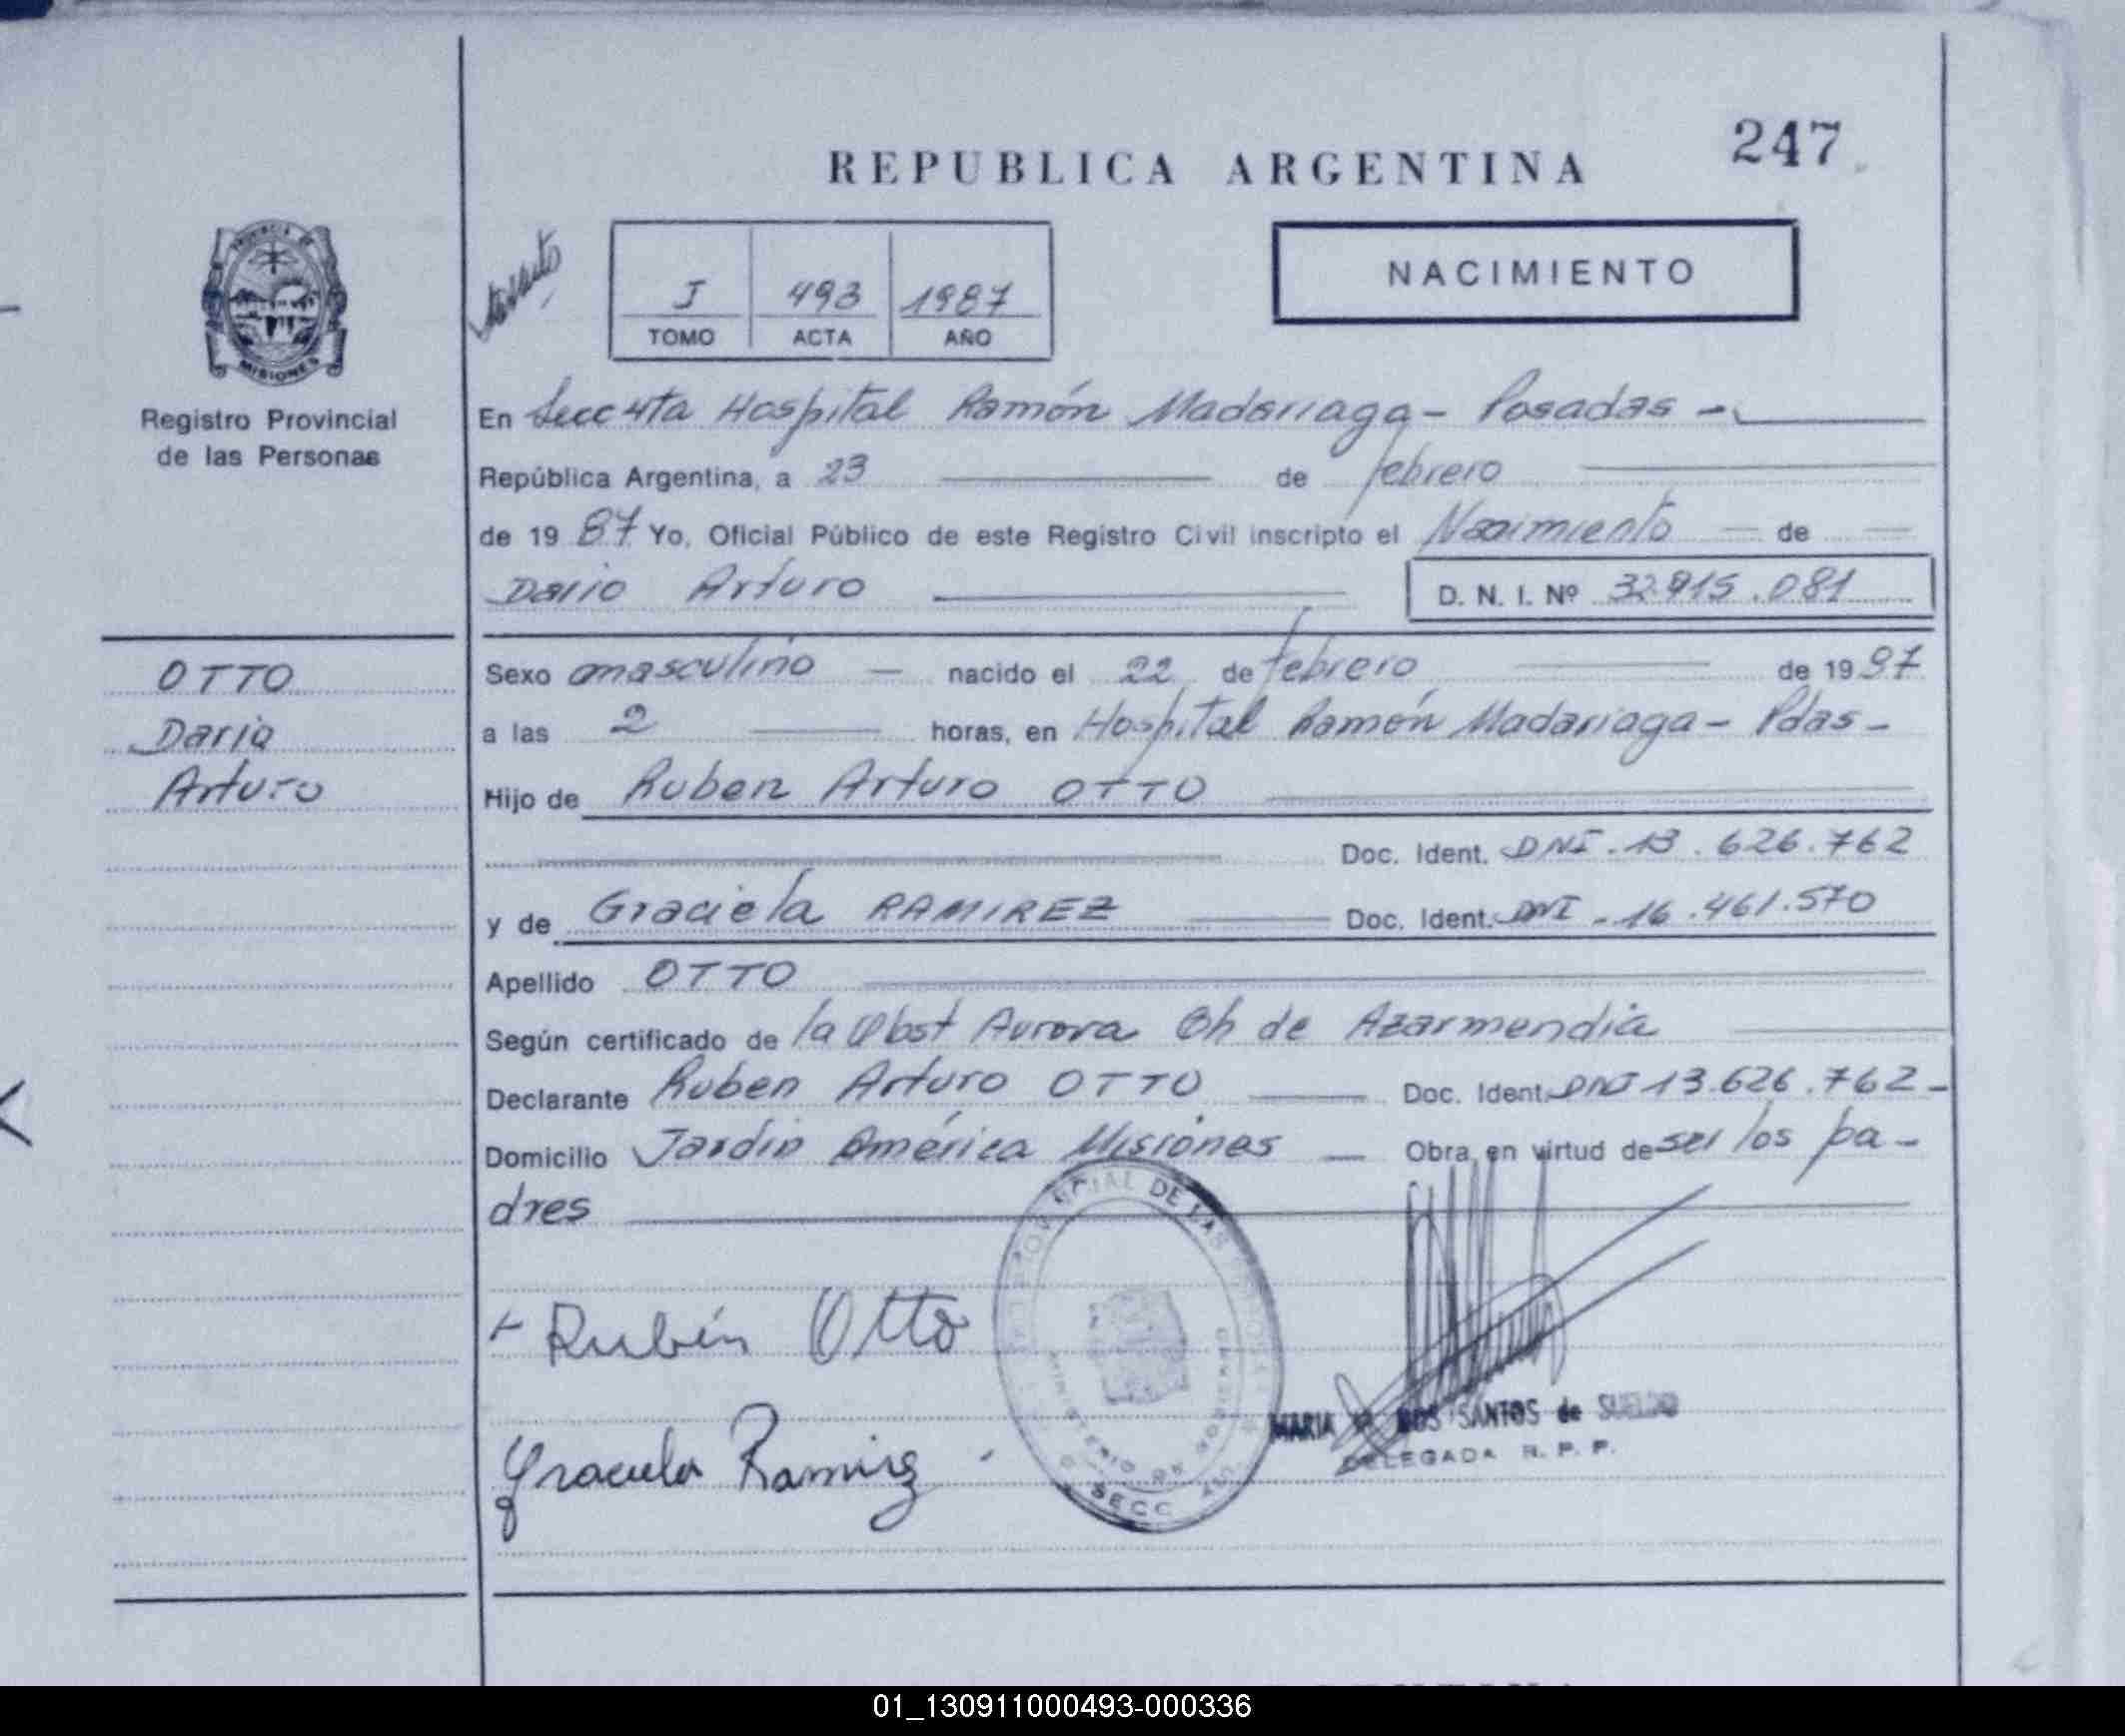 247
REPUBLICA ARGENTINA
PROVINCIA DE
MISIONES
Registro Provincial
de las Personas
J 493 1987
TOMO ACTA AÑO
NACIMIENTO
En Secc 4ta Hospital Ramón Madariaga - Posadas -
República Argentina, a 23 de febrero
de 19 87 Yo, Oficial Público de este Registro Civil inscripto el Nacimiento de
Dario Arturo D. N. I. Nº 32.915.081
OTTO
Dario
Arturo
Sexo masculino nacido el 22 de febrero de 19 87
a las 2 horas, en Hospital Ramón Madariaga - Pdas -
Hijo de Ruben Arturo OTTO
Doc. Ident. DNI - 13.626.762
y de Graciela RAMIREZ Doc. Ident. DNI - 16.461.570
Apellido OTTO
Según certificado de la Obst Aurora Ch de Azarmendia
Declarante Ruben Arturo OTTO Doc. Ident. DNI 13.626.762 -
Domicilio Jardin América Misiones Obra en virtud de ser los pa-
dres
Rubén Otto
Graciela Ramirez
DE LAS
SECC
MARIA DOS SANTOS de SUELDO
DELEGADA R. P. P.
01_130911000493-000336